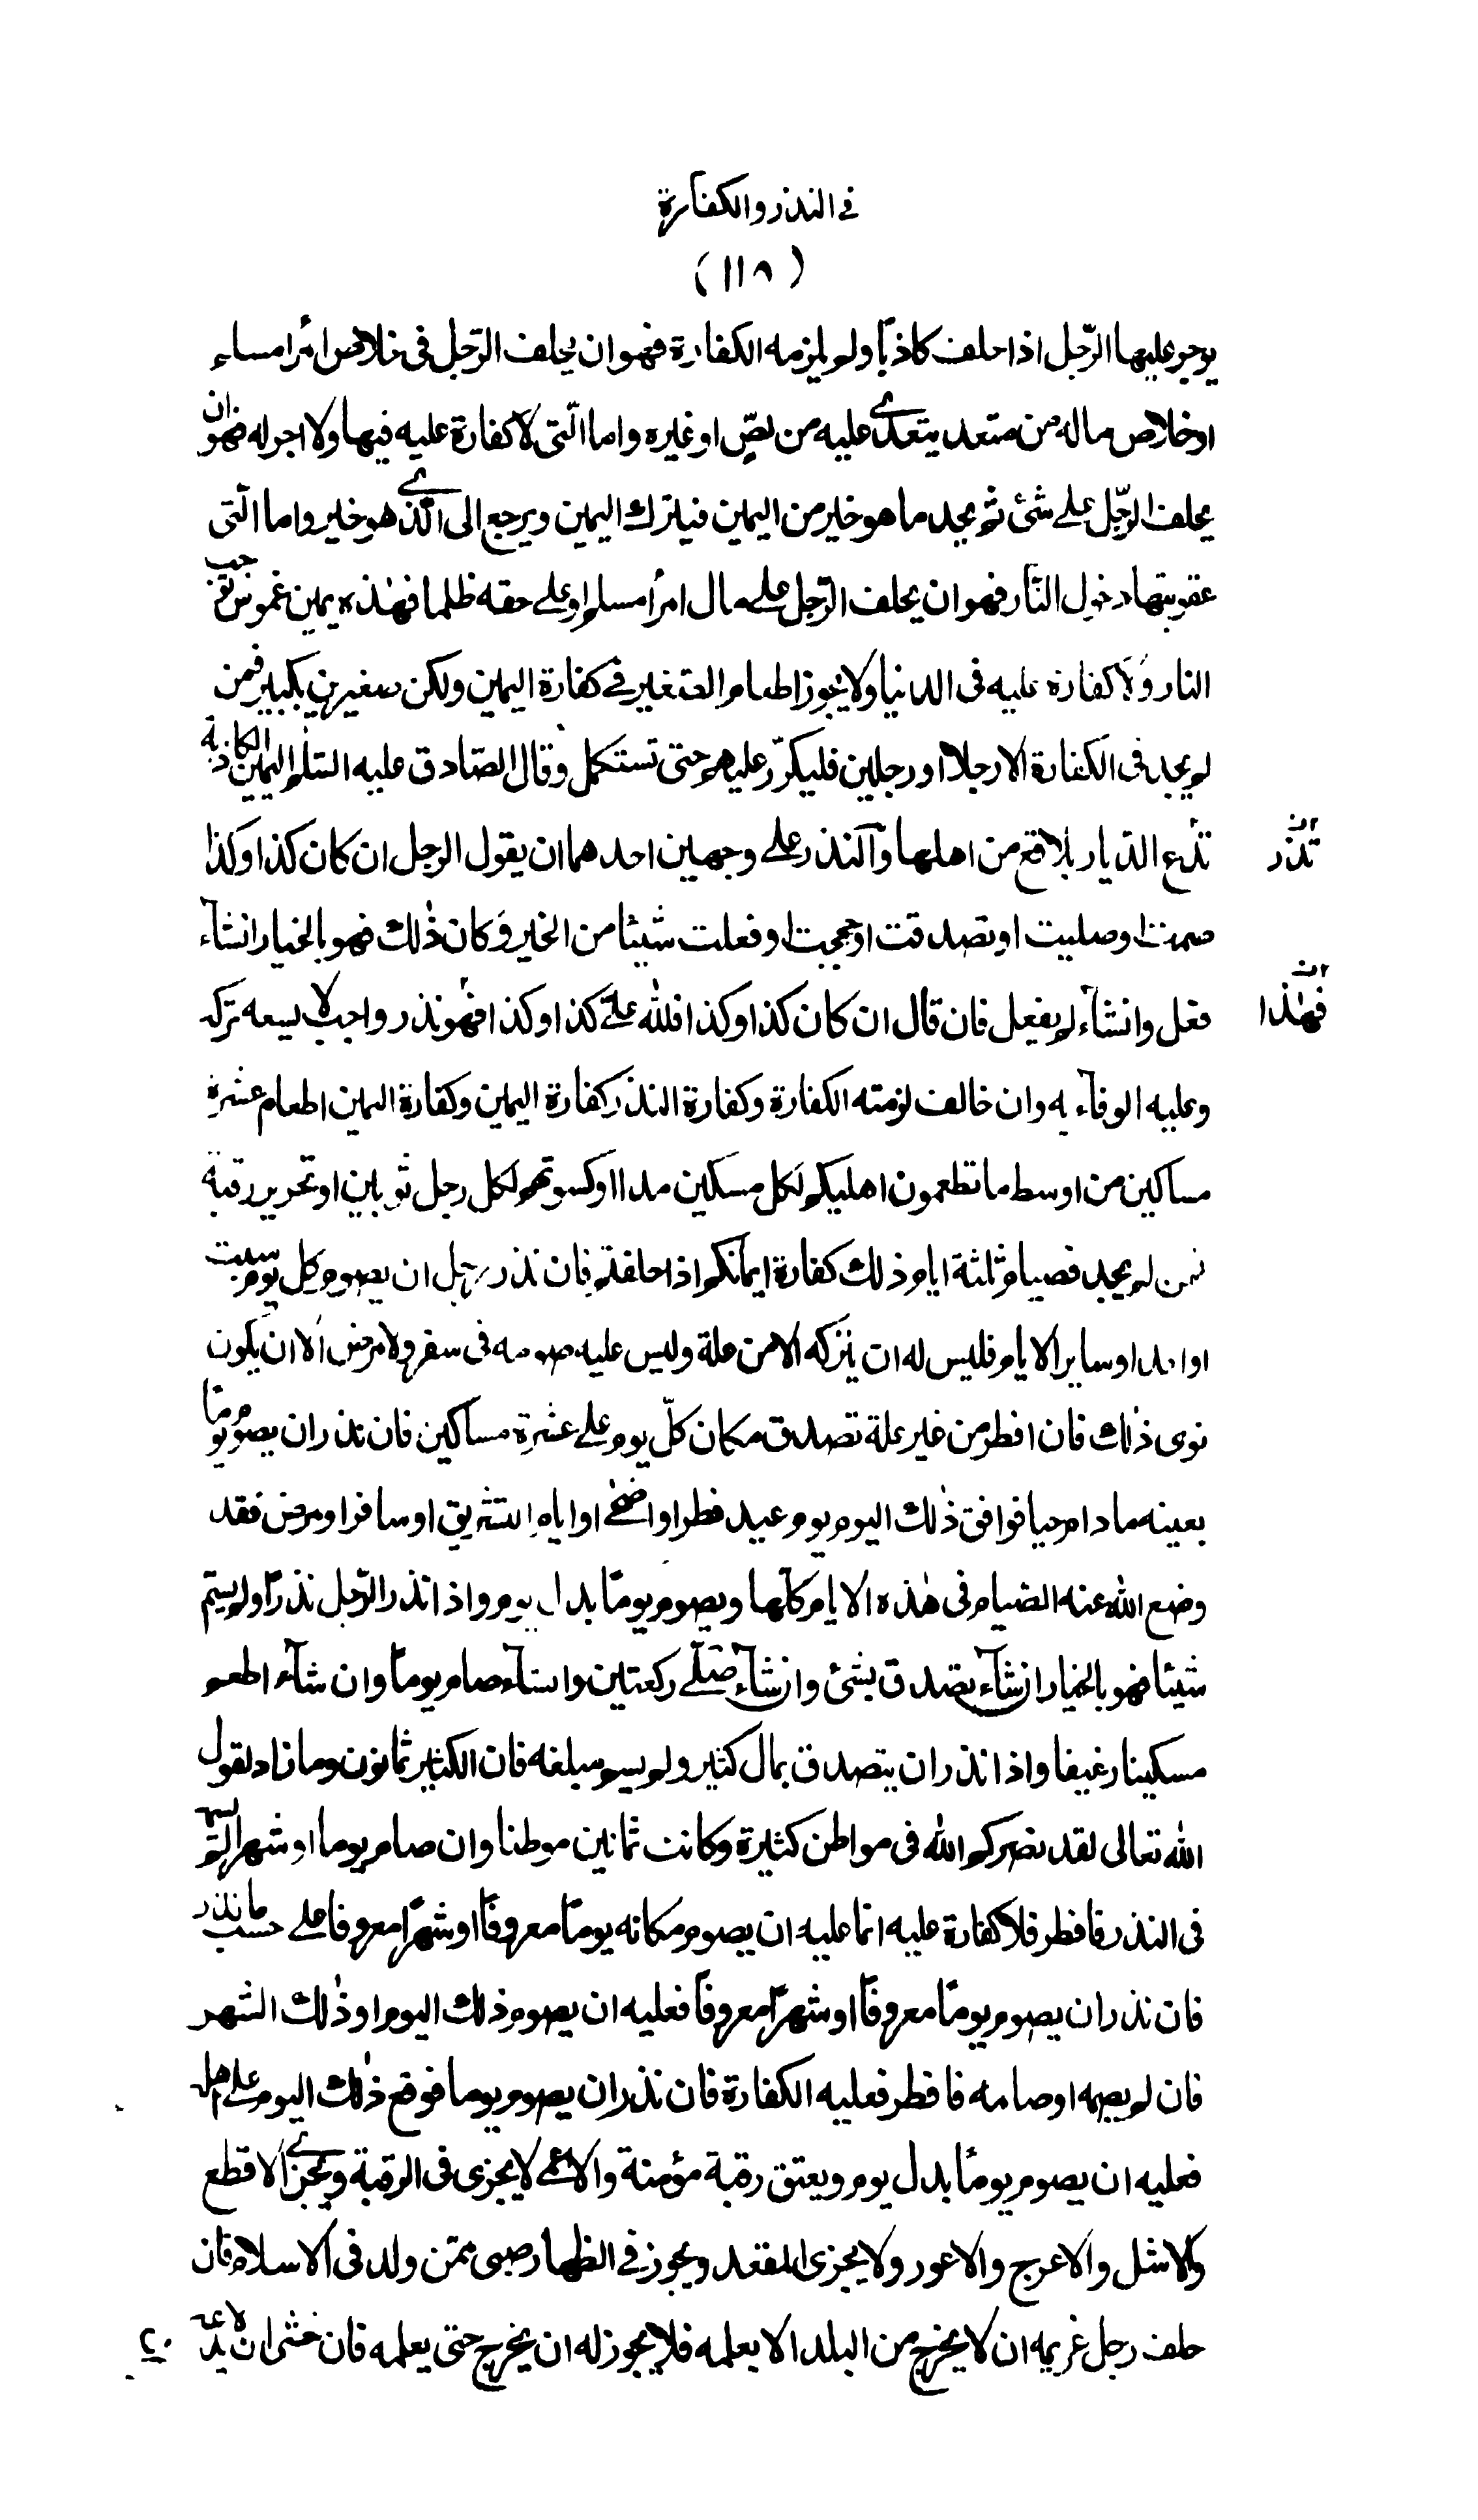 في النذر والكفارة
(١١٨)
يوجر عليها الرّجل اذا حلف كاذبًا ولم يلزمه الكفارة فهو ان يحلف الرّجل فى خلاص امرأ مسلم
او خلاص ماله من متعد يتعدى عليه من لصّ او غيره واما الّتى لا كفارة عليه فيها ولا اجر له فهو ان
يحلف الرّجل على شئ ثم يجد ما هو خير من اليمين فيترك اليمين ويرجع الى الّذى هو خير واما الّتى
عقوبتها دخول النّار فهو ان يحلف الرّجل على مال امرأ مسلم او على حقه ظلما فهذه يمين غموس توجب
النار ولا كفارة عليه فى الدنيا ولا يجوز اطعام الصّغير في كفارة اليمين ولكن صغيرين بكبير فمن
لم يجد فى الكفارة الا رجلا او رجلين فليكرّر عليهم حتى تستكمل وقال الصّادق عليه السّلم اليمين الكاذبة
تدع الدّيار بلاقع من اهلها والنذر على وجهين احدهما ان يقول الرجل ان كان كذا وكذا
تذر
صمت او صليت او تصدقت او حججت او فعلت شيئا من الخير وكان ذٰلك فهو بالخيار انشآء
فعل وانشآء لم يفعل فان قال ان كان كذا وكذا فلله علىّ كذا وكذا فهو نذر واجب لا يسعه تركه
فهذا
وعليه الوفآء به وان خالف لزمته الكفارة وكفارة النذر كفارة اليمين وكفارة اليمين اطعام عشرة
مساكين من اوسط ما تطعمون اهليكم لكل مسكين مد او كسوتهم لكل رجل ثوبين او تحرير رقبة
فمن لم يجد فصيام ثلثة ايام ذلك كفارة ايمانكم اذا حلفتم فان نذر رجل ان يصوم كل يوم سبت
او احد او ساير الايام فليس له ان يتركه الا من علة وليس عليه صومه فى سفر ولا مرض الا ان يكون
نوى ذٰلك فان افطر من غير علة تصدق مكان كلّ يوم على عشرة مساكين فان نذر ان يصوم يومًا
بعينه ما دام حيا فوافق ذٰلك اليوم يوم عيد فطر او اضحى او ايام التشريق او سافر او مرض فقد
وضع الله عنه الصّيام فى هٰذه الايام كلّها ويصوم يومًا بدل يوم واذا نذر الرّجل نذرًا ولم يسم
شيئا فهو بالخيار انشآء تصدق بشئ وانشآء صلّى ركعتين وانشآء صام يومًا وان شآء اطعم
مسكينا رغيفا واذا نذر ان يتصدق بمال كثير ولم يسم مبلغه فان الكثير ثمانون وما زاد لقول
الله تعالى لقد نصركم الله فى مواطن كثيرة وكانت ثمانين موطنا وان صام يوما او شهرا لم يسمه
فى النذر فافطر فلا كفارة عليه انما عليه ان يصوم مكانه يومًا معروفًا او شهرًا معروفا على حسب ما نذر
فان نذر ان يصوم يومًا معروفًا او شهرًا معروفًا فعليه ان يصوم ذلك اليوم او ذٰلك الشهر
فان لم يصمه او صامه فافطر فعليه الكفارة فان نذر ان يصوم يوما فوقع ذٰلك اليوم على اهله
فعليه ان يصوم يومًا بدل يوم ويعتق رقبة مؤمنة والاعمى لا يجزى فى الرقبة ويجزى الاقطع
والاشل والاعرج والاعور ولا يجزى المقعد ويجوز في الظهار صبى ممّن ولد فى الاسلام فان
حلف رجل غريمه ان لا يخرج من البلد الا بعلمه فلا يجوز له ان يخرج حتى يعلمه فان خشى ان لا يدعه